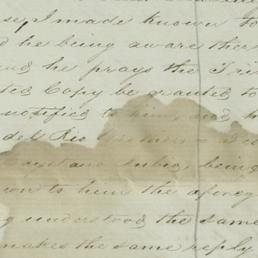 se, I made known to
d he being aware ther
and he prays the Tri
ted Copy be granted to
notified to him, and h
del Rio
being
own to hear the afore
g understood the same
makes the same reply